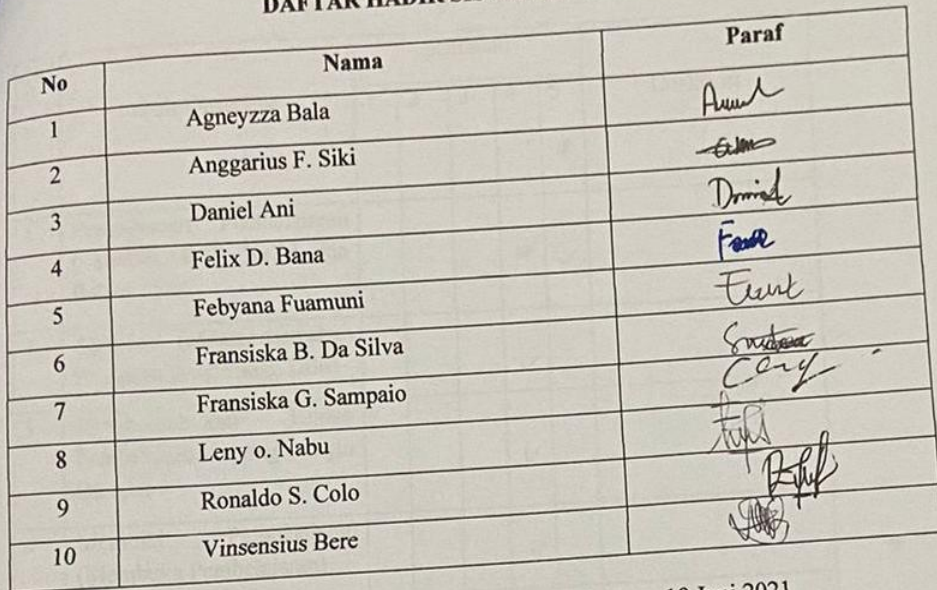 DAFTAR HADIR
No Nama Paraf
1 Agneyzza Bala
2 Anggarius F. Siki
3 Daniel Ani
4 Felix D. Bana
5 Febyana Fuamuni
6 Fransiska B. Da Silva
7 Fransiska G. Sampaio
8 Leny o. Nabu
9 Ronaldo S. Colo
10 Vinsensius Bere
Juni 2021